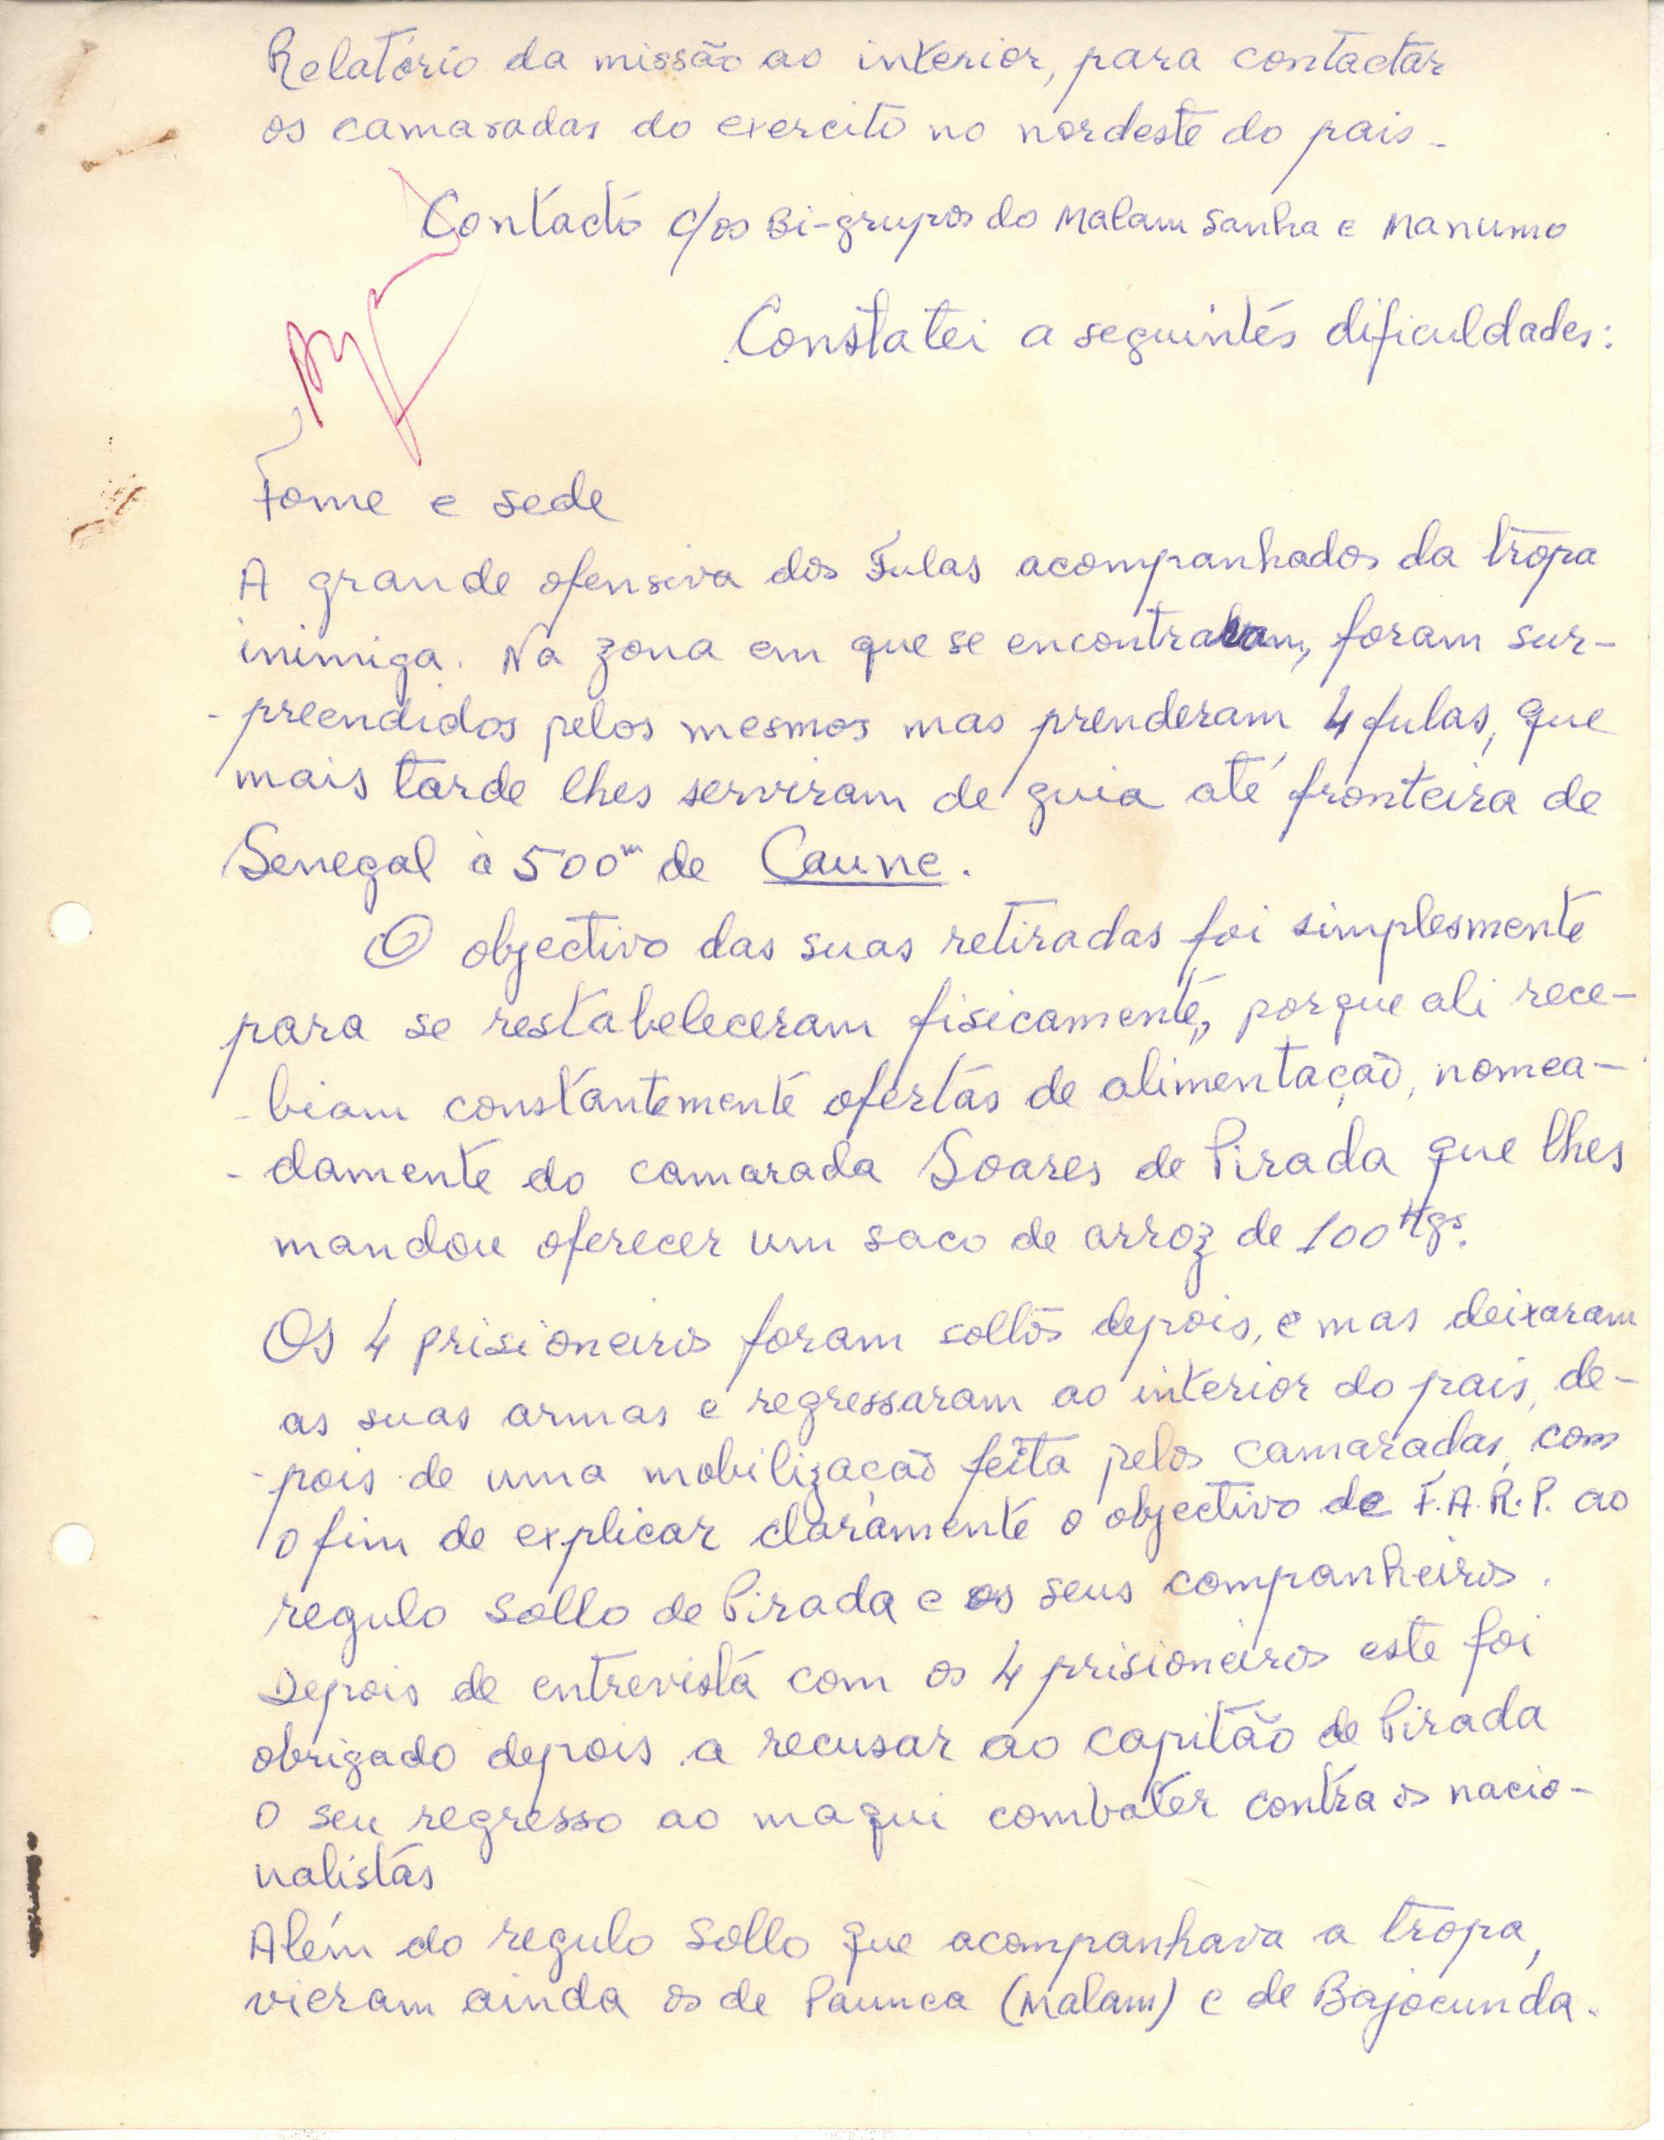 Relatório da missão ao interior, para contactar
os camaradas do exercito no nordeste do pais -
Contacto c/os Bi-grupos do Malam Sanha e Manumo
Constatei a seguintes dificuldades:
Fome e sede
A grande ofensiva dos Fulas acompanhados da tropa
inimiga. Na zona em que se encontravam, foram sur-
-preendidos pelos mesmos mas prenderam 4 fulas, que
mais tarde lhes serviram de guia até fronteira de
Senegal à 500m de Caune.
O objectivo das suas retiradas foi simplesmente
para se restabeleceram fisicamente, porque ali rece-
-biam constantemente ofertas de alimentação, nomea-
-damente do camarada Soares de Pirada que lhes
mandou oferecer um saco de arroz de 100 Kgs.
Os 4 prisioneiros foram soltos depois, e mas deixaram
as suas armas e regressaram ao interior do pais, de-
-pois de uma mobilização feita pelos camaradas, com
o fim de explicar claramente o objectivo de F.A.R.P. ao
regulo Sollo de Pirada e os seus companheiros.
Depois de entrevista com os 4 prisioneiros este foi
obrigado depois a recusar ao capitão de Pirada
o seu regresso ao maqui combater contra os nacio-
nalistas
Além do regulo Sollo que acompanhava a tropa,
vieram ainda os de Paunca (Malam) e de Bajocunda.